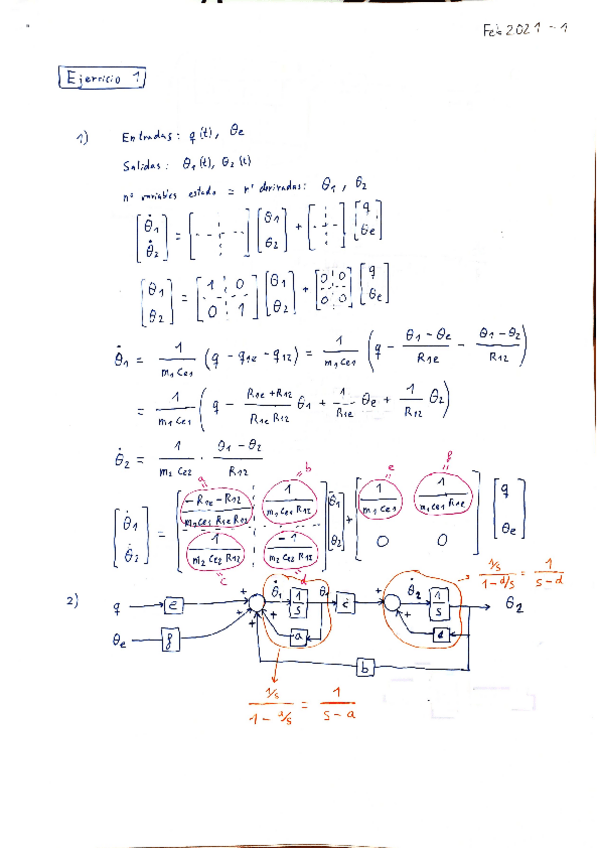 Feb 2021 - 1
Ejercicio 1
1) Entradas: q(t), θe
Salidas: θ1(t), θ2(t)
nº variables estado = nº derivadas: θ1, θ2
[θ̇1; θ̇2] = [ ] [θ1; θ2] + [ ] [q; θe]
[θ1; θ2] = [1 0; 0 1] [θ1; θ2] + [0 0; 0 0] [q; θe]
θ̇1 = 1/(m1 ce1) (q - q1e - q12) = 1/(m1 ce1) (q - (θ1 - θe)/R1e - (θ1 - θ2)/R12)
= 1/(m1 ce1) (q - (R1e + R12)/(R1e R12) θ1 + 1/R1e θe + 1/R12 θ2)
θ̇2 = 1/(m2 ce2) · (θ1 - θ2)/R12
a b e f
[θ̇1; θ̇2] = [(-R1e - R12)/(m1 ce1 R1e R12) 1/(m1 ce1 R12); 1/(m2 ce2 R12) -1/(m2 ce2 R12)] [θ1; θ2] + [1/(m1 ce1) 1/(m1 ce1 R1e); 0 0] [q; θe]
c d
(1/s)/(1 - d/s) = 1/(s - d)
2) q e + + θ̇1 1/s θ1 c + θ̇2 1/s θ2
θe f + + a + d
b
(1/s)/(1 - a/s) = 1/(s - a)